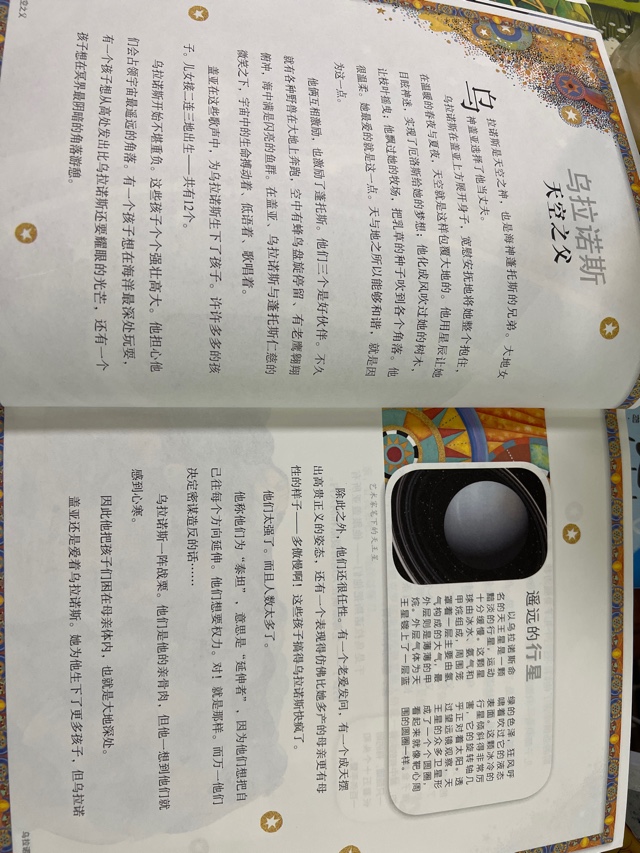 空之父
乌拉诺斯
天空之父
乌拉诺斯是天空之神，也是海神蓬托斯的兄弟。大地女
神盖亚选择了他当丈夫。
乌拉诺斯在盖亚上方展开身子，宽慰安抚地将她整个抱住，
在温暖的春夜与夏夜，天空就是这样包覆大地的。他用星辰让她
目眩神迷，实现了厄洛斯给她的梦想；他化成风吹过她的树木，
让枝叶摇曳；他飘过她的牧场，把乳草的种子吹到各个角落。他
很温柔。她最爱的就是这一点。天与地之所以能够和谐，就是因
为这一点。
他俩互相激励，也激励了蓬托斯。他们三个是好伙伴。不久
就有各种野兽在大地上奔跑，空中有蜂鸟盘旋停留、有老鹰翱翔
俯冲，海中满是闪亮的鱼群。在盖亚、乌拉诺斯与蓬托斯仁慈的
微笑之下，宇宙中的生命搏动着、低语着、歌唱着。
盖亚在这些歌声中，为乌拉诺斯生下了孩子。许许多多的孩
子。儿女接二连三地出生——共有12个。
乌拉诺斯开始不堪重负。这些孩子个个强壮高大。他担心他
们会占领宇宙最遥远的角落。有一个孩子想在海洋最深处玩耍，
有一个孩子想从高处发出比乌拉诺斯还要耀眼的光芒，还有一个
孩子想在冥界最阴暗的角落游憩。
遥远的行星
以乌拉诺斯命
名的天王星是一颗
黯淡的行星，运动
十分缓慢。这颗星
球由冰水、氨气和
甲烷组成，周围笼
罩着一层主要由氢
气构成的大气，最
外层则是薄薄的甲
烷。外层气体为天
王星镀上了一层蓝
绿的色泽，狂风呼
啸着吹过它的液态
表面。这颗冰冷的
行星倾斜得非常厉
害，它的旋转轴几
乎正对着太阳。透
过望远镜观察，天
王星的众多卫星形
成了一个个圆圈，
看起来就像靶心周
围的圆圈一样。
艺术家笔下的天王星
除此之外，他们还很任性。有一个老爱发问，有一个成天摆
出高贵正义的姿态，还有一个表现得仿佛比她多产的母亲更有母
性的样子——多傲慢啊！这些孩子搞得乌拉诺斯快疯了。
他们太强了。而且人数太多了。
他称他们为“泰坦”，意思是“延伸者”，因为他们想把自
己往每个方向延伸。他们想要权力。对！就是那样。而万一他们
决定密谋造反的话……
乌拉诺斯一阵战栗。他们是他的亲骨肉，但他一想到他们就
感到心寒。
因此他把孩子们困在母亲体内，也就是大地深处。
盖亚还是爱着乌拉诺斯。她为他生下了更多孩子，但乌拉诺
乌拉诺